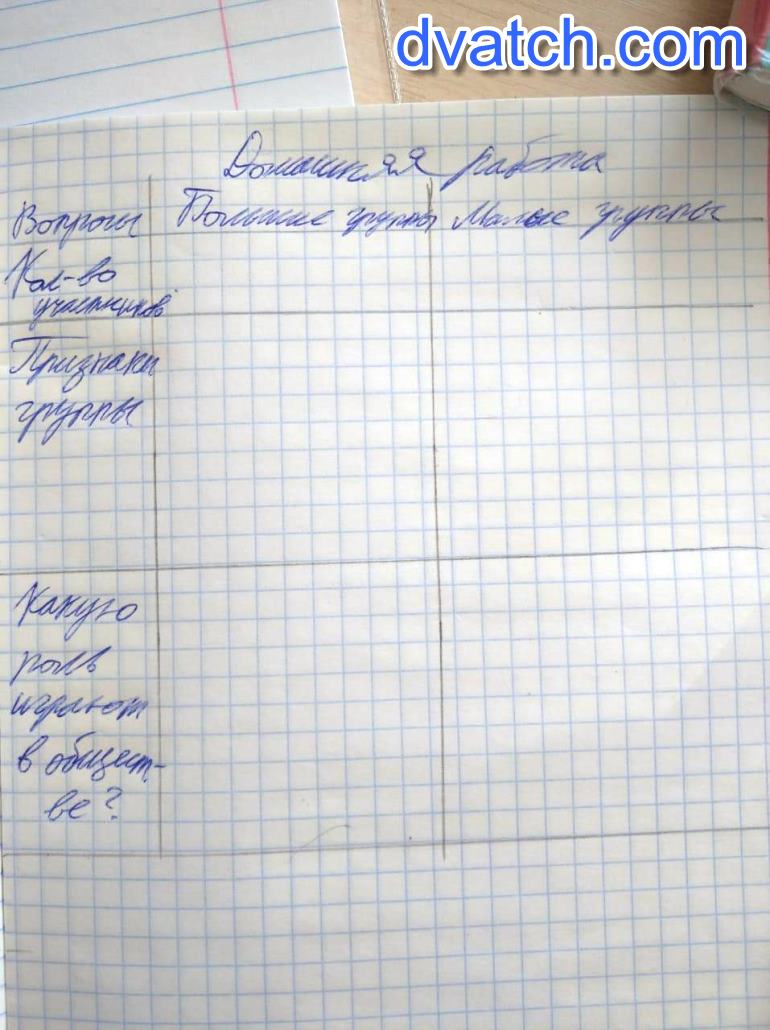 dvatch.com
Домашняя работа
Вопросы Большие группы Малые группы
Кол-во
участников
Признаки
группы
Какую
роль
играют
в общест-
ве?